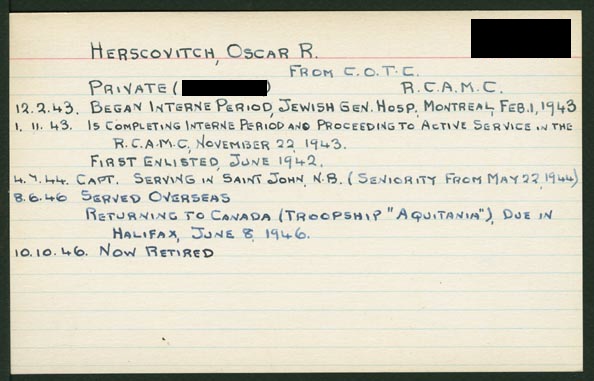 HERSCOVITCH, OSCAR R.
FROM C.O.T.C.
PRIVATE ( ) R.C.A.M.C.
12.2.43. BEGAN INTERNE PERIOD, JEWISH GEN. HOSP. MONTREAL, FEB.1, 1943
1.11.43. IS COMPLETING INTERNE PERIOD AND PROCEEDING TO ACTIVE SERVICE IN THE
R.C.A.M.C, NOVEMBER 22, 1943.
FIRST ENLISTED, JUNE 1942.
4.7.44. CAPT. SERVING IN SAINT JOHN, N.B. (SENIORITY FROM MAY 22, 1944)
8.6.46 SERVED OVERSEAS
RETURNING TO CANADA (TROOPSHIP "AQUITANIA"), DUE IN
HALIFAX, JUNE 8, 1946.
10.10.46. NOW RETIRED